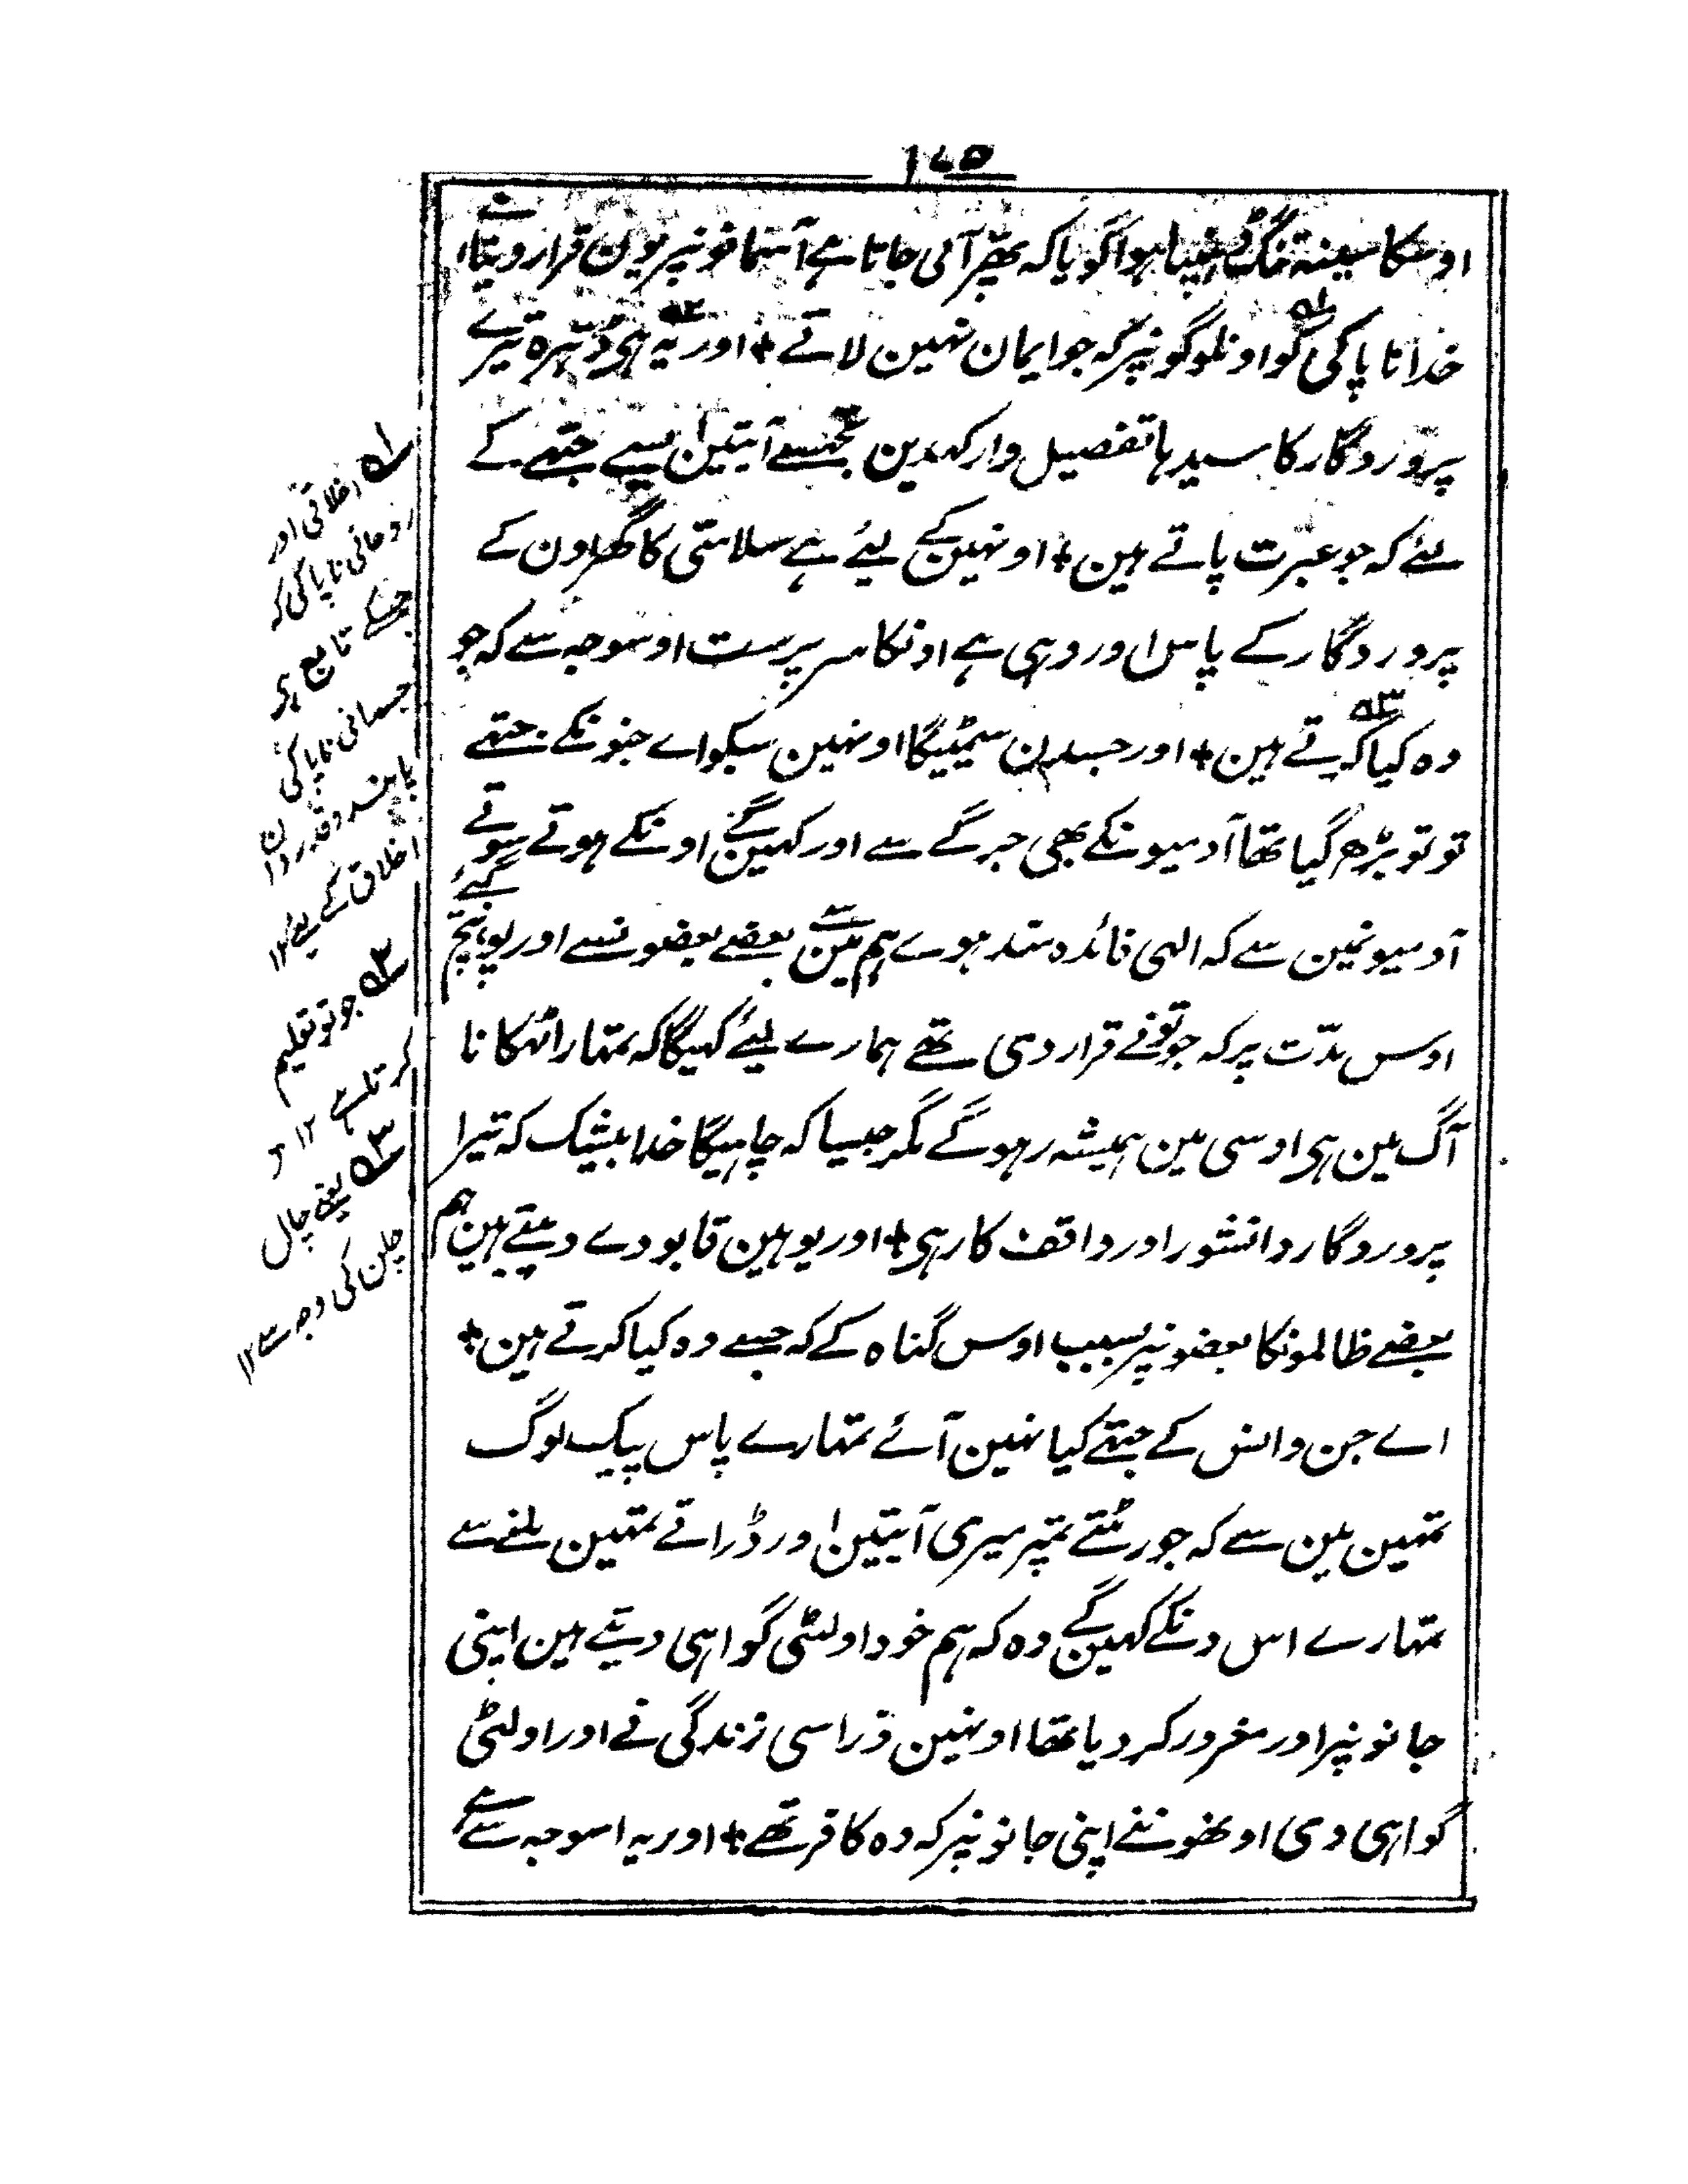 ۱۷۵
اوسکا سینہ تنگ بھنچا ہوا گویا کہ بھرّ آئی جاتا ہے آسمانونپر یون قرار دیتا ہے
خدا ناپاکی کو اونلوگونپر کہ جو ایمان نہین لاتے + اور یہ ہی ڈہرہ تیرے
پروردگار کا سیدہا تفصیل وار کہدین ہمنے آیتین ایسے جتھے کے
لئے کہ جو عبرت پاتے ہین + اونہین کے لیئے ہے سلامتی کا گھر اون کے
پروردگار کے پاس اور وہی ہے اونکا سرپرست اوسوجہ سے کہ جو
وہ کیا کرتے ہین + اور جسدن سمیٹیگا اونہین سبکو اے جنونکے جتھے
تو تو بڑھ گیا تھا آدمیونکے بھی جرگے سے اور کہین گے اونکے ہوتے سوتے
آدمیونمین سے کہ الہی فائدہ مند ہوے ہم مین سے بعضے بعضونسے اور پہونچ گئے
اوس مدّت پر کہ جو تونے قرار دی تھے ہمارے لیئے کہیگا کہ تمہارا ٹھکانا
آگ مین ہی اوسی مین ہمیشہ رہوگے مگر جیسا کہ چاہیگا خدا بیشک کہ تیرا
پروردگار دانشور اور واقف کار ہی + اور یوہین قابو دے دیتے ہین ہم
بعضے ظالمونکا بعضونپر بسبب اوس گناہ کے کہ جسے وہ کیا کرتے ہین +
اے جن و انس کے جتھے کیا نہین آئے تمہارے پاس پیک لوگ
تمہین مین سے کہ جو رٹتے تمپر میری آیتین اور ڈراتے تمہین ملنے سے
تمہارے اس دنکے کہین گے وہ کہ ہم خود اولٹی گواہی دیتے ہین اپنی
جانونپر اور مغرور کر دیا تھا اونہین ذرا سی زندگی نے اور اولٹی
گواہی دی اونھوننے اپنی جانونپر کہ وہ کافر تھے + اور یہ اسوجہ سے ہے
۵۱ اخلاقی اور
روحانی ناپاکی کہ
جسکے تابع ہی
جسمانی ناپاکی
پابند و قدردان
اخلاق کے لیئے ۱۲
۵۲ جو تو تعلیم
کرتا ہے ۱۲
۵۳ یعنے چال
چلن کی وجہ سے ۱۲